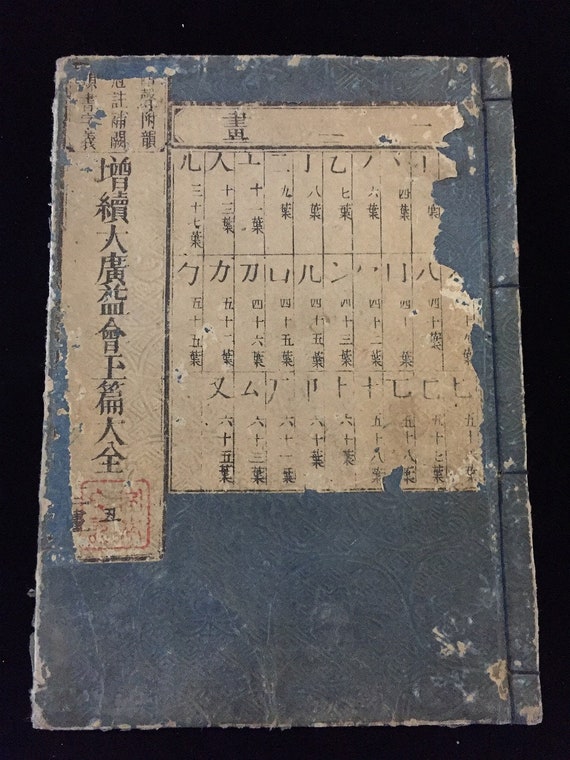 一二畫
四葉
六葉
乙 七葉
丁 八葉
二 九葉
亠 十一葉
人 十三葉
儿 三十七葉
八 四十葉
冂 四十葉
冫 四十三葉
几 四十五葉
凵 四十五葉
刀 四十六葉
力 五十一葉
勹 五十五葉
匕 五十
匚 五十七葉
匸 五十八葉
十 五十八葉
卜 六十葉
卩 六十葉
六十一葉
厶 六十三葉
又 六十五葉
聲附韻
冠註補闕
類書字義
增續大廣益會玉篇大全
丑
二畫